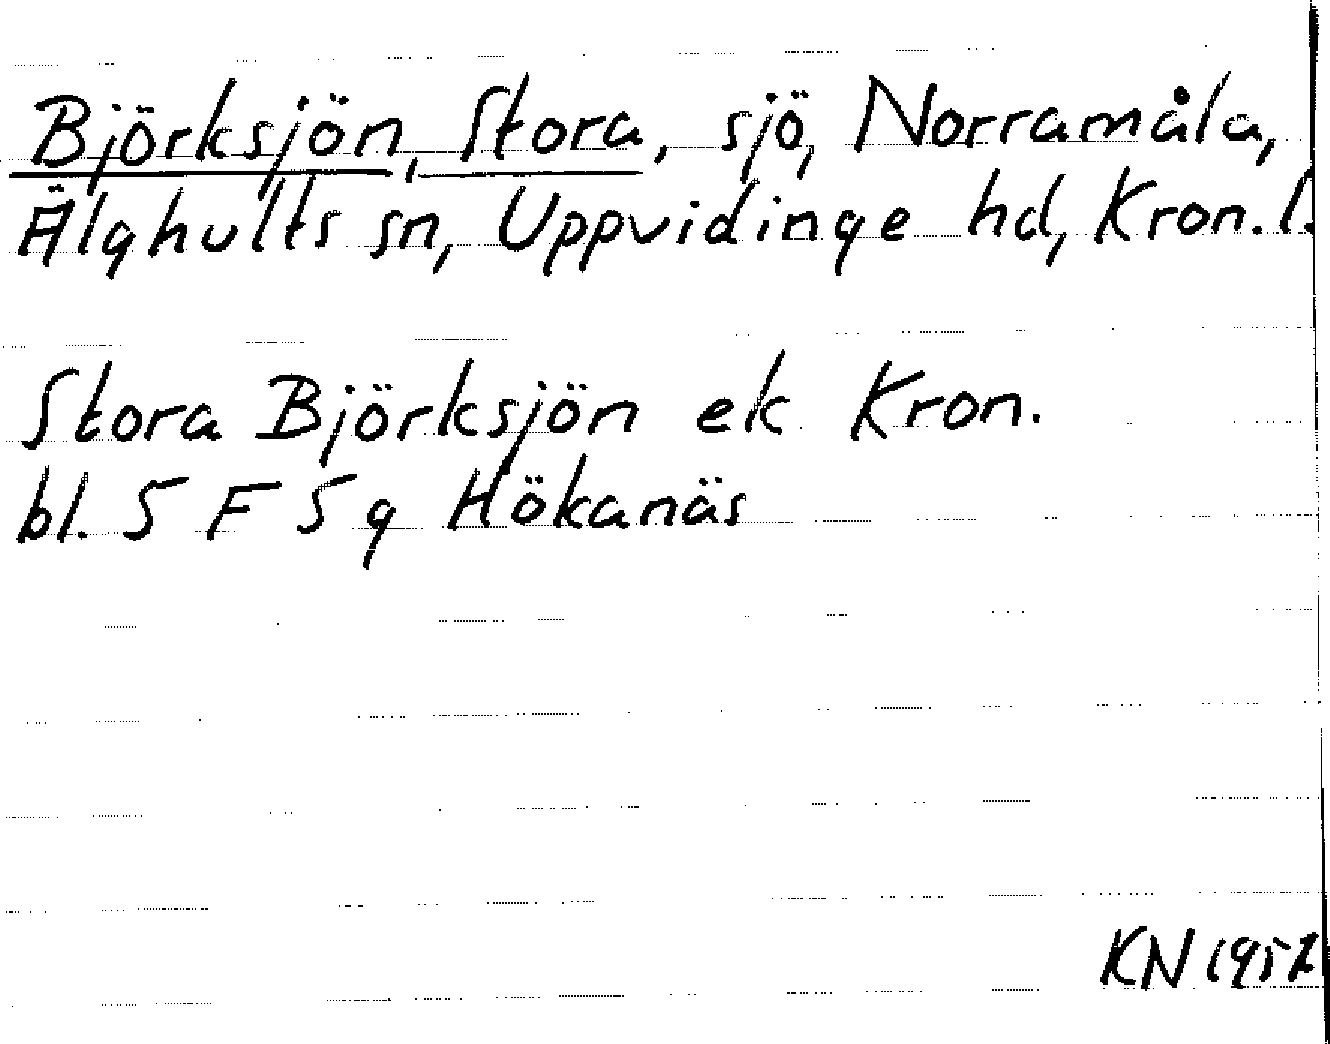 Björksjön, Stora, sjö, Norramåla,
Älghults sn, Uppvidinge hd, Kron. l.
Stora Björksjön ek Kron.
bl. 5 F 5 g Hökanäs
KN